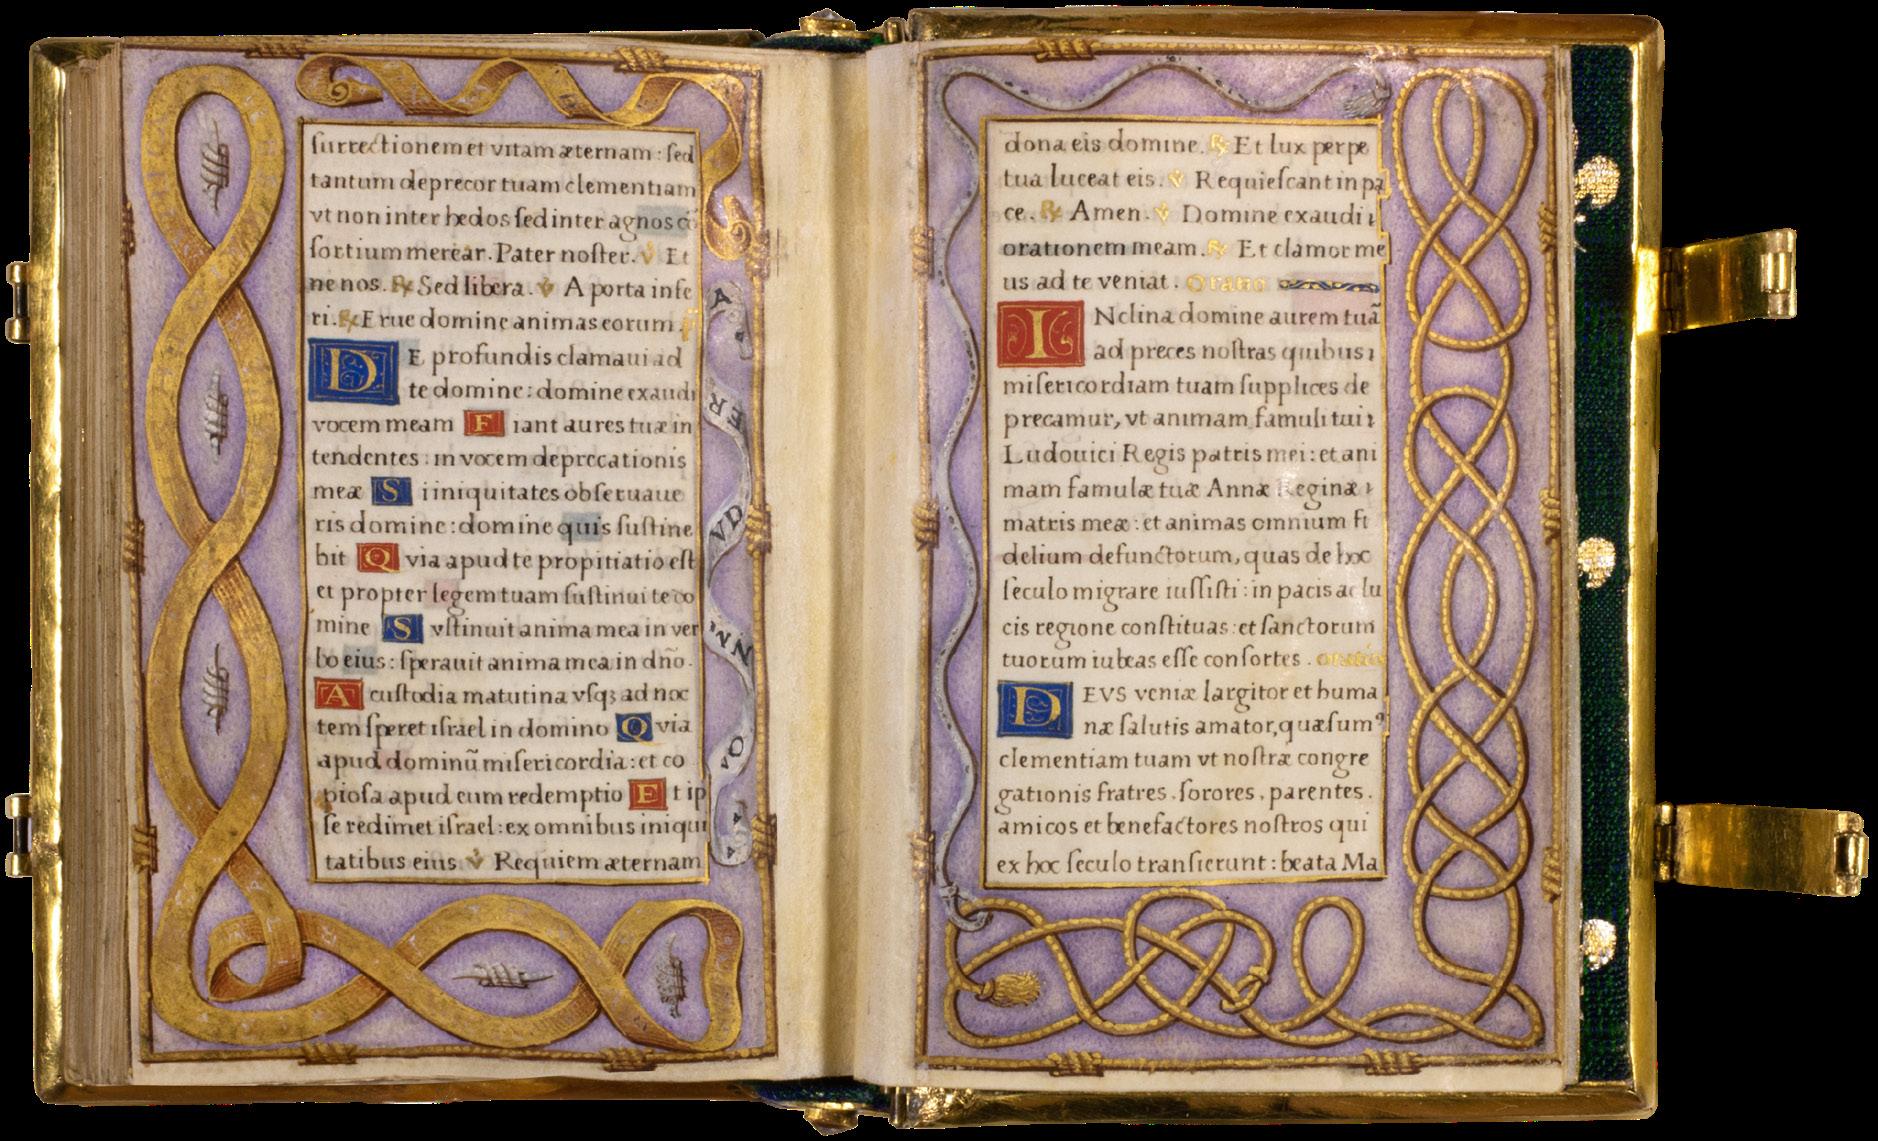 surrectionem et vitam æternam: sed
tantum deprecor tuam clementiam
vt non inter hedos sed inter agnos cō
sortium merear. Pater noster. ℣ Et
ne nos. ℟ Sed libera. ℣ A porta infe
ri. ℟ Erue domine animas eorum.
DE profundis clamaui ad
te domine: domine exaudi
vocem meam Fiant aures tuæ in
tendentes: in vocem deprecationis
meæ Si iniquitates obseruaue
ris domine: domine quis sustine
bit Quia apud te propitiatio est
et propter legem tuam sustinui te do
mine Sustinuit anima mea in ver
bo eius: sperauit anima mea in dño.
A custodia matutina vsqꝫ ad noc
tem speret israel in domino Quia
apud dominū misericordia: et co
piosa apud eum redemptio Et ip
se redimet israel: ex omnibus iniqui
tatibus eius ℣ Requiem æternam
dona eis domine. ℟ Et lux perpe
tua luceat eis. ℣ Requiescant in pa
ce. ℟ Amen. ℣ Domine exaudi
orationem meam. ℟ Et clamor me
us ad te veniat. Oratio
INclina domine aurem tuā
ad preces nostras quibus
misericordiam tuam supplices de
precamur, vt animam famuli tui
Ludouici Regis patris mei: et ani
mam famulæ tuæ Annæ Reginæ
matris meæ: et animas omnium fi
delium defunctorum, quas de hoc
seculo migrare iussisti: in pacis ac lu
cis regione constituas: et sanctorum
tuorum iubeas esse consortes. oratio
DEVS veniæ largitor et huma
næ salutis amator, quæsumꝰ
clementiam tuam vt nostræ congre
gationis fratres. sorores, parentes.
amicos et benefactores nostros qui
ex hoc seculo transierunt: beata Ma